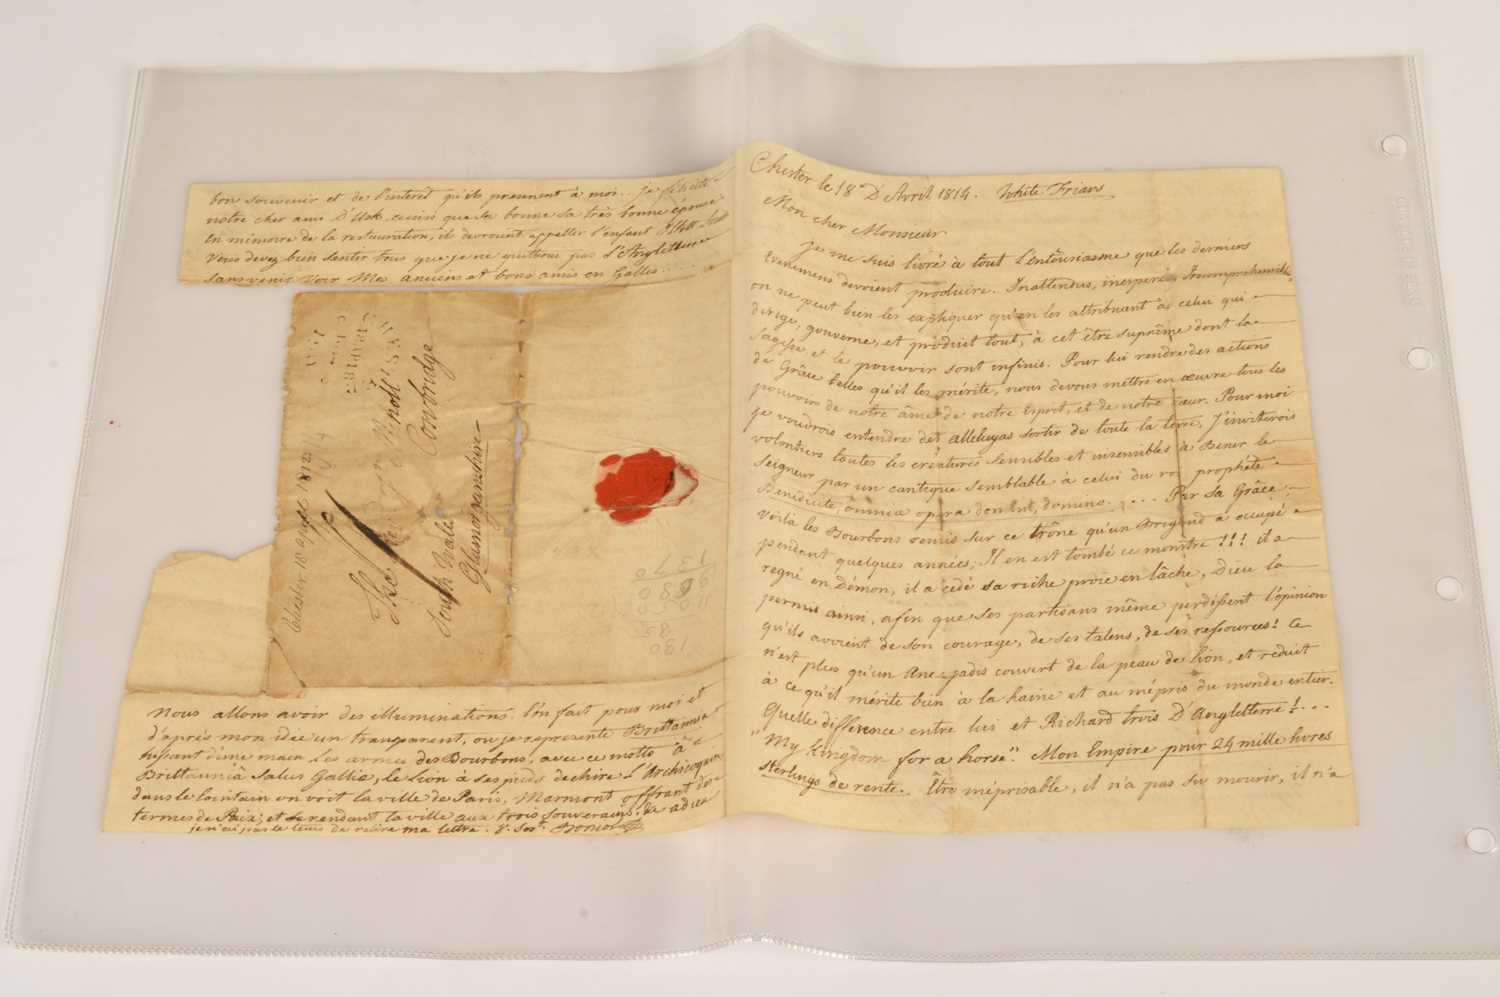 Chester le 18 D'Avril 1814. White Friars
Mon cher Monsieur
Je me suis livré à tout l'entousiasme que les derniers
Evenemens devoient produire. Inattendus, inesperés, Incomprehensibles
on ne peut bien les expliquer qu'en les attribuant à celui qui
dirige, gouverne, et produit tout, à cet être suprême dont la
sagesse et le pouvoir sont infinis. Pour lui rendre des actions
de Grâce telles qu'il les mérite, nous devons mettre en œuvre tous les
pouvoirs de notre âme de notre esprit, et de notre cœur. Pour moi
je voudrois entendre des alleluyas sortir de toute la terre, J'inviterois
volontiers toutes les créatures sensibles et insensibles à Benir le
Seigneur par un cantique semblable à celui du roi prophéte
Benedicite, omnia opera domini, domino. . . . . Par sa Grâce,
voilà les Bourbons remis sur ce trône qu'un Brigand a occupé
pendant quelques années, Il en est tombé ce monstre!!! il a
regné en Démon, il a cédé sa riche proie en lâche, Dieu la
permis ainsi, afin que ses partisans même perdissent l'opinion
qu'ils avoient de son courage, de ses talens, de ses ressources! Ce
n'est plus qu'un Ane jadis couvert de la peau de Lion, et reduit
à ce qu'il mérite bien à la haine et au mépris du monde entier.
Quelle difference entre lui et Richard trois D'Angleterre!...
"My kingdom for a horse". Mon Empire pour 24 mille livres
sterlings de rente. Être méprisable, il n'a pas su mourir, il n'a
bon souvenir et de l'interêt qu'ils prennent à moi. Je félicite
notre cher ami D'Usk. ainsi que sa bonne sa très bonne épouse
En mémoire de la restauration, ils devroient appeller l'enfant
Vous devez bien sentir tous que je ne quitterai pas l'Angleterre
sans venir Voir Mes anciens et bons amis en Galles.
Chester 18 april 1814
Cowbridge
South Wales
Glamorganshire
1370
180
Nous allons avoir des illuminations. l'on fait pour moi et
d'après mon idée un transparent, ou je represente Brittannia
tenant d'une main les armes des Bourbons, avec ce motto à
Brittannià Salus Galliæ, le Lion à ses pieds déchire L'Archicoquin
dans le lointain on voit la ville de Paris, Marmont offrant des
termes de Paix, et se rendant la ville aux trois souverains. adieu
je n'ai pas le tems de relire ma lettre.